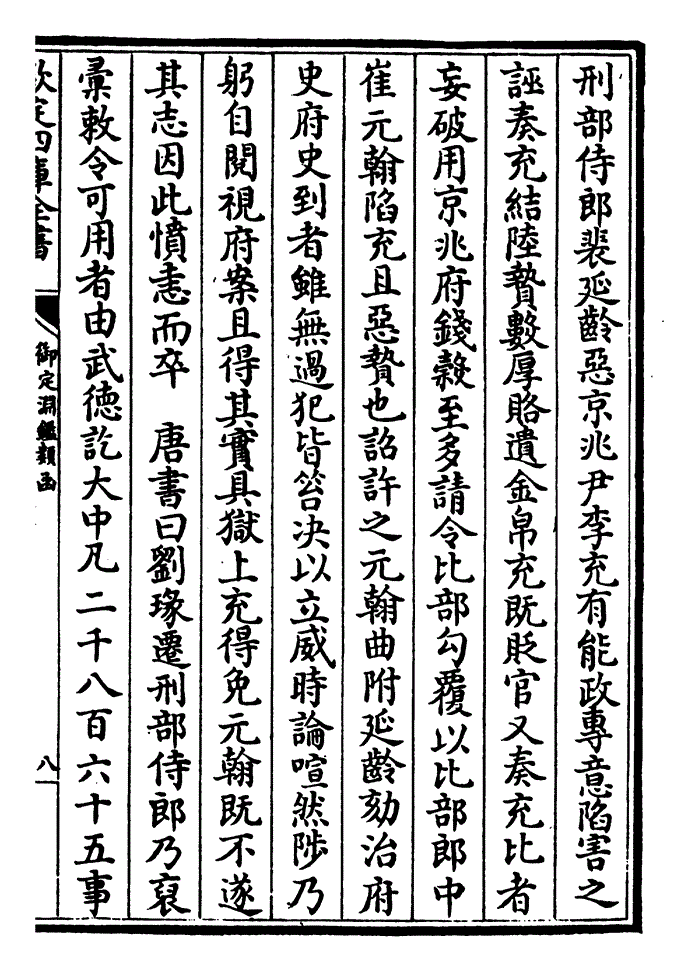 刑部侍郎裴延齡惡京兆尹李充有能政專意陷害之
誣奏充結陸贄數厚賂遺金帛充既貶官又奏充比者
妄破用京兆府錢榖至多請令比部勾覆以比部郎中
崔元翰陷充且惡贄也詔許之元翰曲附延齡劾治府
史府史到者雖無過犯皆笞決以立威時論喧然陟乃
躬自閱視府案且得其實具獄上充得免元翰既不遂
其志因此憤恚而卒　唐書曰劉瑑遷刑部侍郎乃裒
彚敕令可用者由武徳訖大中凡二千八百六十五事
欽定四庫全書
御定淵鑑類函
八